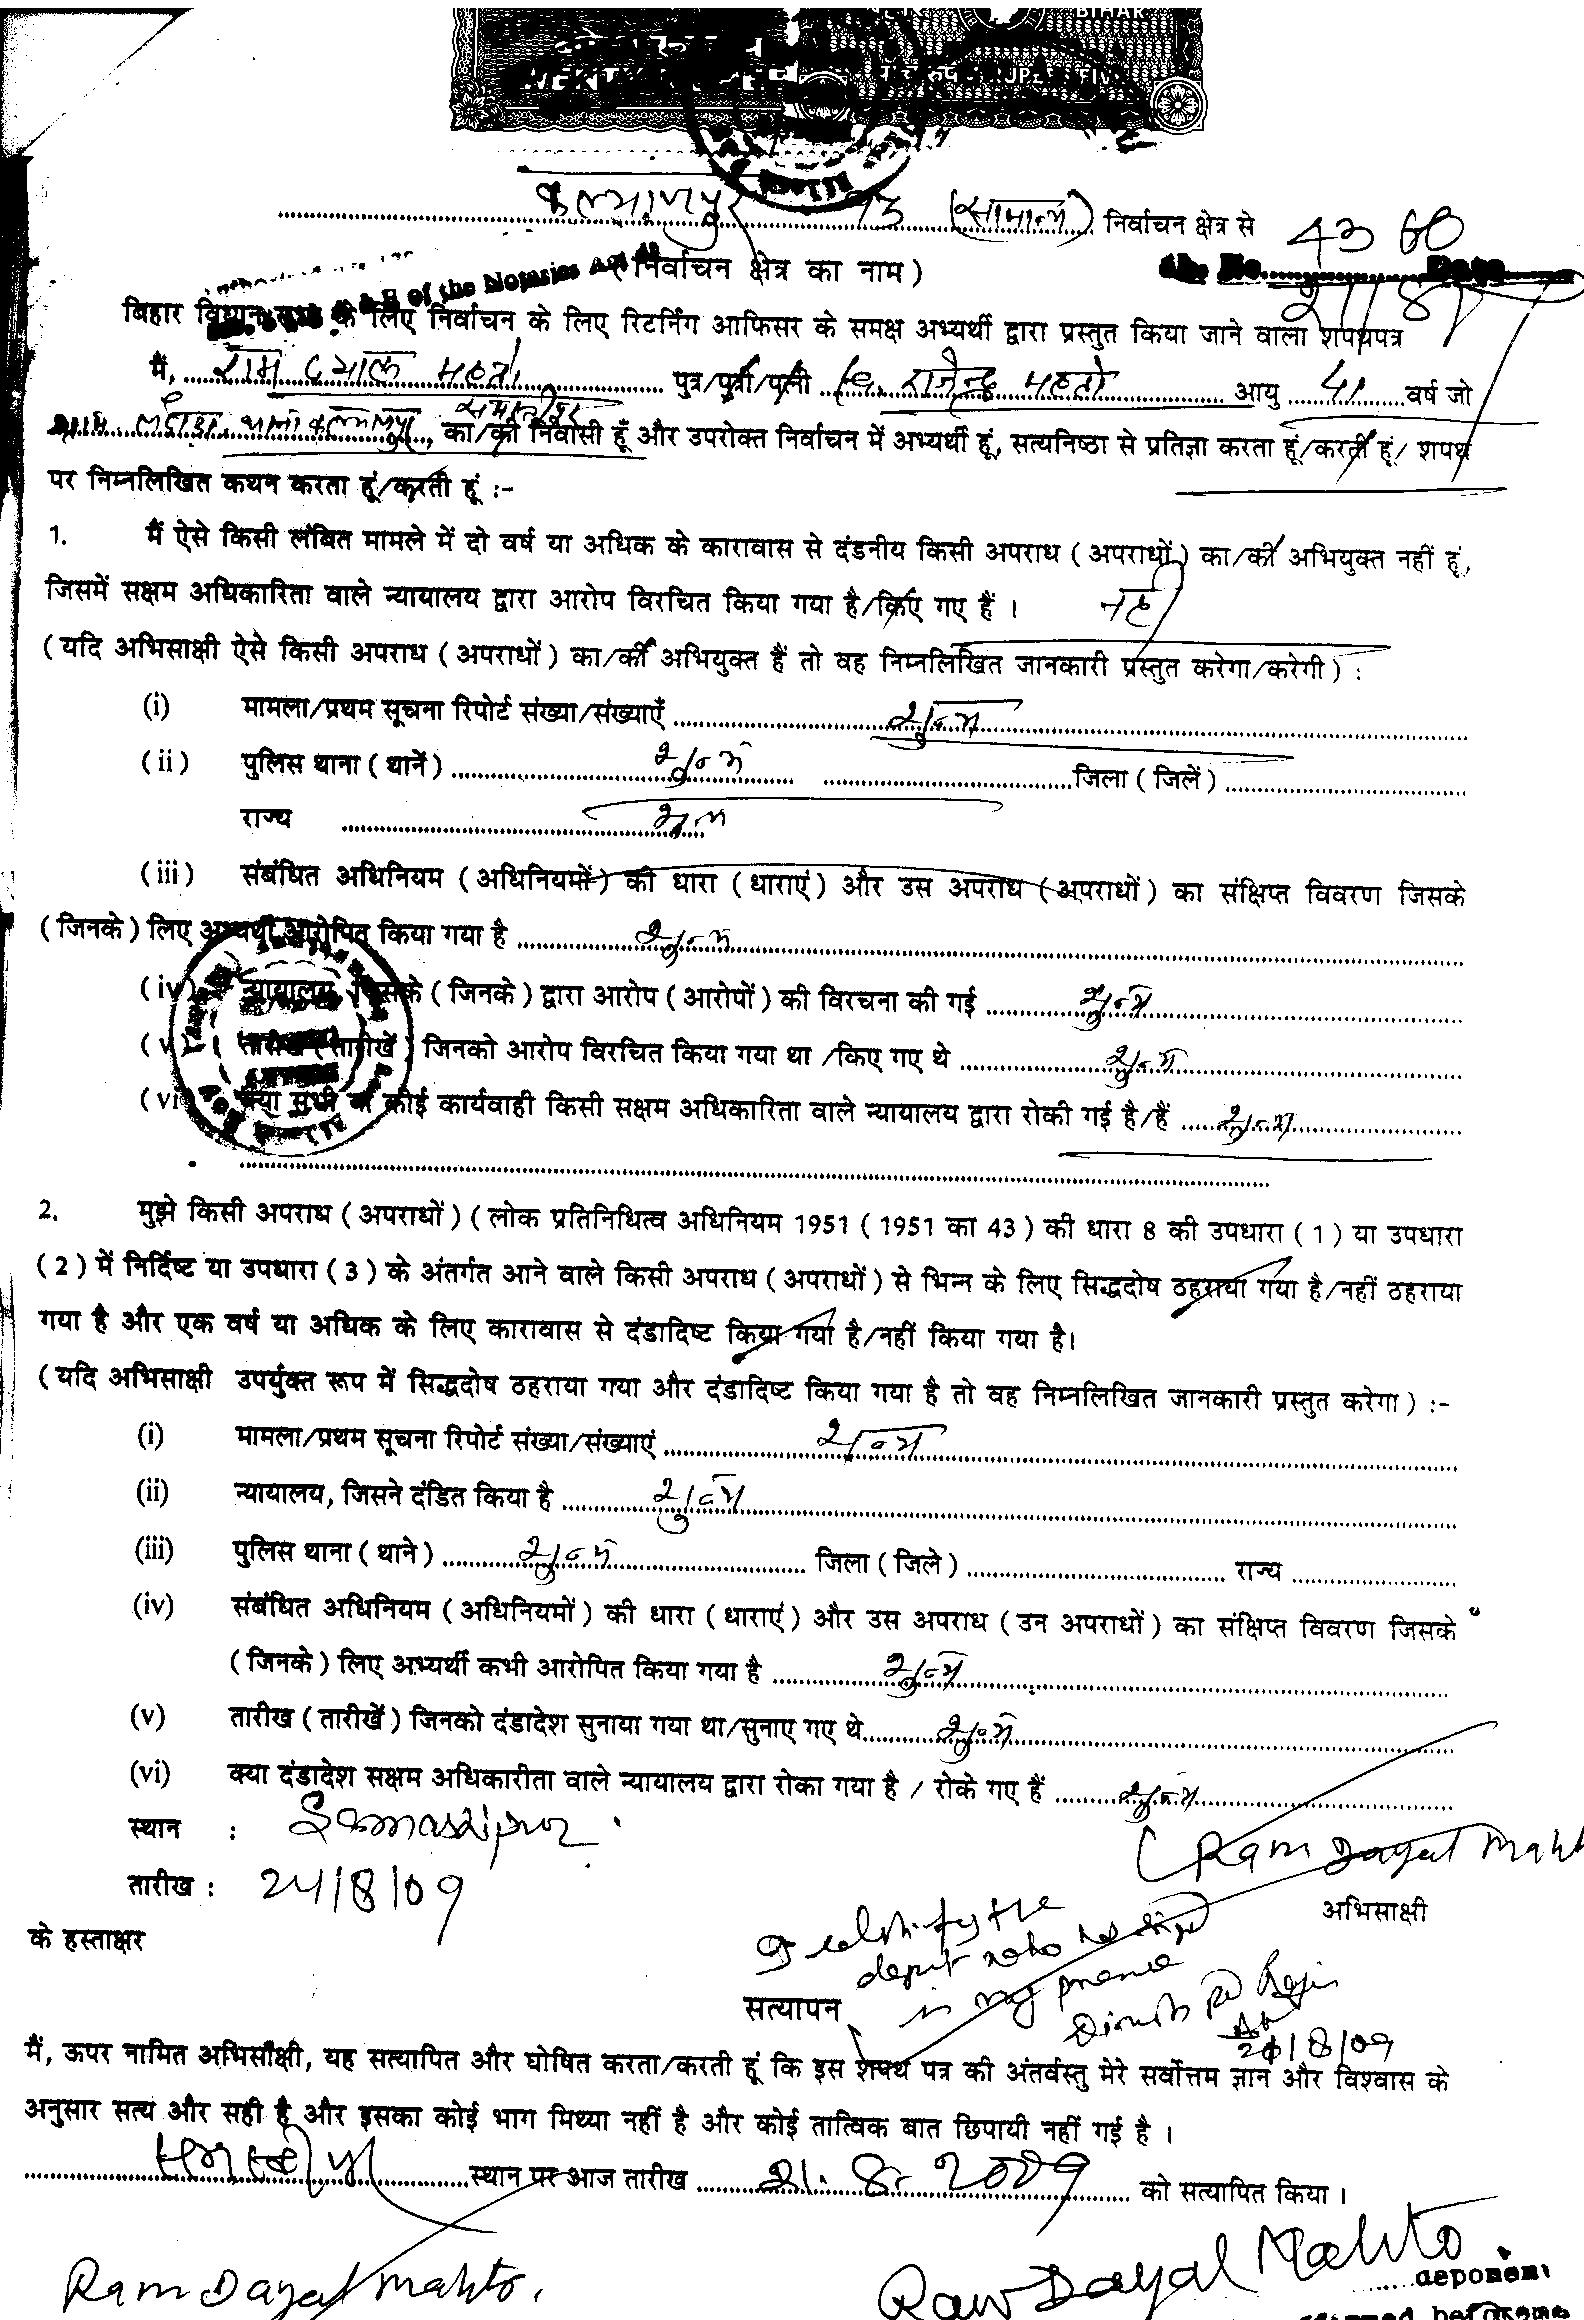 BIHAR
कल्याणपुर (सामान्य) निर्वाचन क्षेत्र से
(निर्वाचन क्षेत्र का नाम)
of the Notaries Act
बिहार विधान सभा के लिए निर्वाचन के लिए रिटर्निंग आफिसर के समक्ष अभ्यर्थी द्वारा प्रस्तुत किया जाने वाला शपथपत्र
मैं, राम दयाल महतो पुत्र/पुत्री/पत्नी राजेन्द्र महतो आयु वर्ष जो
ग्राम थाना कल्याणपुर समस्तीपुर, का/की निवासी हूँ और उपरोक्त निर्वाचन में अभ्यर्थी हूं, सत्यनिष्ठा से प्रतिज्ञा करता हूं/करती हूं/ शपथ
पर निम्नलिखित कथन करता हूं/करती हूं :-
1. मैं ऐसे किसी लंबित मामले में दो वर्ष या अधिक के कारावास से दंडनीय किसी अपराध (अपराधों) का/की अभियुक्त नहीं हूं,
जिसमें सक्षम अधिकारिता वाले न्यायालय द्वारा आरोप विरचित किया गया है/किए गए हैं । नहीं
(यदि अभिसाक्षी ऐसे किसी अपराध (अपराधों) का/की अभियुक्त हैं तो वह निम्नलिखित जानकारी प्रस्तुत करेगा/करेगी) :
(i) मामला/प्रथम सूचना रिपोर्ट संख्या/संख्याएँ शुन्य
(ii) पुलिस थाना (थानें) शुन्य जिला (जिलें)
राज्य शुन्य
(iii) संबंधित अधिनियम (अधिनियमों) की धारा (धाराएं) और उस अपराध (अपराधों) का संक्षिप्त विवरण जिसके
(जिनके) लिए अभ्यर्थी आरोपित किया गया है शुन्य
(iv) न्यायालय जिसके (जिनके) द्वारा आरोप (आरोपों) की विरचना की गई शुन्य
(v) तारीख (तारीखें) जिनको आरोप विरचित किया गया था /किए गए थे शुन्य
(vi) क्या सभी या कोई कार्यवाही किसी सक्षम अधिकारिता वाले न्यायालय द्वारा रोकी गई है/हैं शुन्य
2. मुझे किसी अपराध (अपराधों) (लोक प्रतिनिधित्व अधिनियम 1951 (1951 का 43) की धारा 8 की उपधारा (1) या उपधारा
(2) में निर्दिष्ट या उपधारा (3) के अंतर्गत आने वाले किसी अपराध (अपराधों) से भिन्न के लिए सिद्धदोष ठहराया गया है/नहीं ठहराया
गया है और एक वर्ष या अधिक के लिए कारावास से दंडादिष्ट किया गया है/नहीं किया गया है।
(यदि अभिसाक्षी उपर्युक्त रूप में सिद्धदोष ठहराया गया और दंडादिष्ट किया गया है तो वह निम्नलिखित जानकारी प्रस्तुत करेगा) :-
(i) मामला/प्रथम सूचना रिपोर्ट संख्या/संख्याएं शुन्य
(ii) न्यायालय, जिसने दंडित किया है शुन्य
(iii) पुलिस थाना (थाने) शुन्य जिला (जिले) राज्य
(iv) संबंधित अधिनियम (अधिनियमों) की धारा (धाराएं) और उस अपराध (उन अपराधों) का संक्षिप्त विवरण जिसके
(जिनके) लिए अभ्यर्थी कभी आरोपित किया गया है शुन्य
(v) तारीख (तारीखें) जिनको दंडादेश सुनाया गया था/सुनाए गए थे शुन्य
(vi) क्या दंडादेश सक्षम अधिकारीता वाले न्यायालय द्वारा रोका गया है / रोके गए हैं शुन्य
स्थान : Samastipur
Ram Dayal Mahto
तारीख : 24/8/09
अभिसाक्षी
के हस्ताक्षर
in my presence
सत्यापन
/8/09
मैं, ऊपर नामित अभिसाक्षी, यह सत्यापित और घोषित करता/करती हूं कि इस शपथ पत्र की अंतर्वस्तु मेरे सर्वोत्तम ज्ञान और विश्वास के
अनुसार सत्य और सही है और इसका कोई भाग मिथ्या नहीं है और कोई तात्विक बात छिपायी नहीं गई है ।
स्थान पर आज तारीख 8. 2009 को सत्यापित किया ।
Ram Dayal Mahto.
Ram Dayal Mahto
deponent